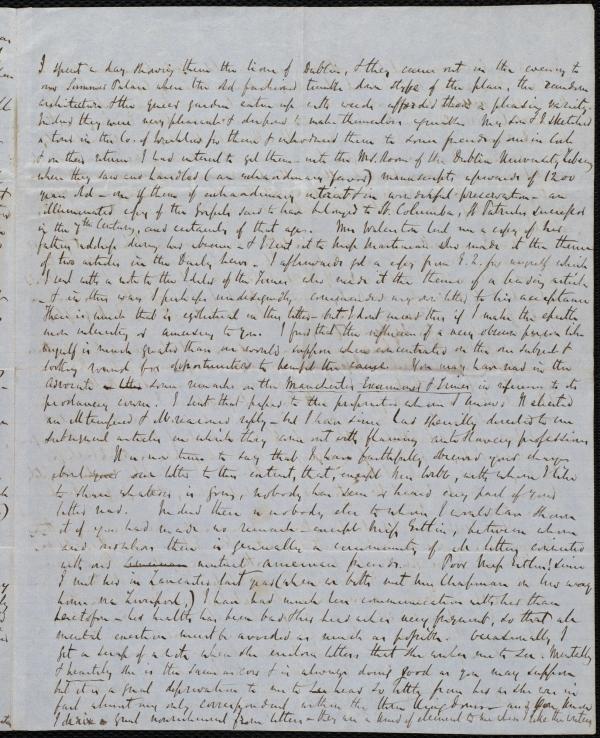 I spent a day showing them the lions of Dublin, & they came out in the evening to
our Summer Palace where the old fashioned tumble down style of the place, the random
architecture & the queer garden eaten up with weeds afforded them a pleasing variety.
Indeed they were very pleasant & disposed to make themselves agreeable. My son & I sketched
a tour in the Co. of Wicklow for them & introduced them to some friends of ours in
& on their return I had interest to get them into the MS. Room of the Dublin University Library
where they saw and handled (an extraordinary favor) manuscripts upwards of 1200
years old — one of them of extraordinary interest & in wonderful preservation — an
illuminated copy of the Gospels said to have belonged to St. Columba, St Patrick's successor
in the 7th Century, and certainly of that age. Mr lent me a copy of his
address during his absence — & I sent it to Miss Martineau who made it the theme
of two articles in the Daily News. I afterwards got a copy from E. Q. for myself which
I sent with a note to the Editor of the who made it the theme of a leading article
— & in this way I perhaps undesignedly commended my letter to his acceptance
There is much that is egotistical in this letter — but I dont mind this if I make the epistle
more interesting or amusing to you. I find that the influence of a very obscure person like
myself is much greater than one would suppose when concentrated on the one subject &
looking round for opportunities to benefit the cause. You may have read in the
Advocate some remarks on the Manchester Examiner & Times in reference to its
proslavery course. I sent that paper to the proprietor whom I know. It elicited
an ill tempered & ill reasoned reply — but I have since had specially directed to me
subsequent articles in which they come out with flaming antislavery professions
It is now time to say that I have faithfully observed your charge
about your letter to this extent, that, except Mrs Webb, with whom I like
to share whatever is going, nobody has seen or heard any part of your
letter read. Indeed there is nobody else to whom I would have shown
it if you had made no remark except Miss Estlin, between whom
and ourselves there is generally a community of all letters connected
with our mutual American friends. Poor Miss Estlin! Since
I met her in Lancaster last year (when we both met Mrs Chapman on her way
home via Liverpool,) I have had much less communication with her than
heretofore — her health has been bad & her head aches very frequent, so that all
mental exertion must be avoided as much as possible. Occasionally I
get a scrap of a note when she encloses letters that she wishes me to see. Mentally
& heartily she is the same as ever & is always doing good as you may suppose
but it is a great deprivation to me to hear so little from her as she was in
fact almost my only correspondent within the — and you know
I derive a great nourishment from letters — they are a kind of element to me